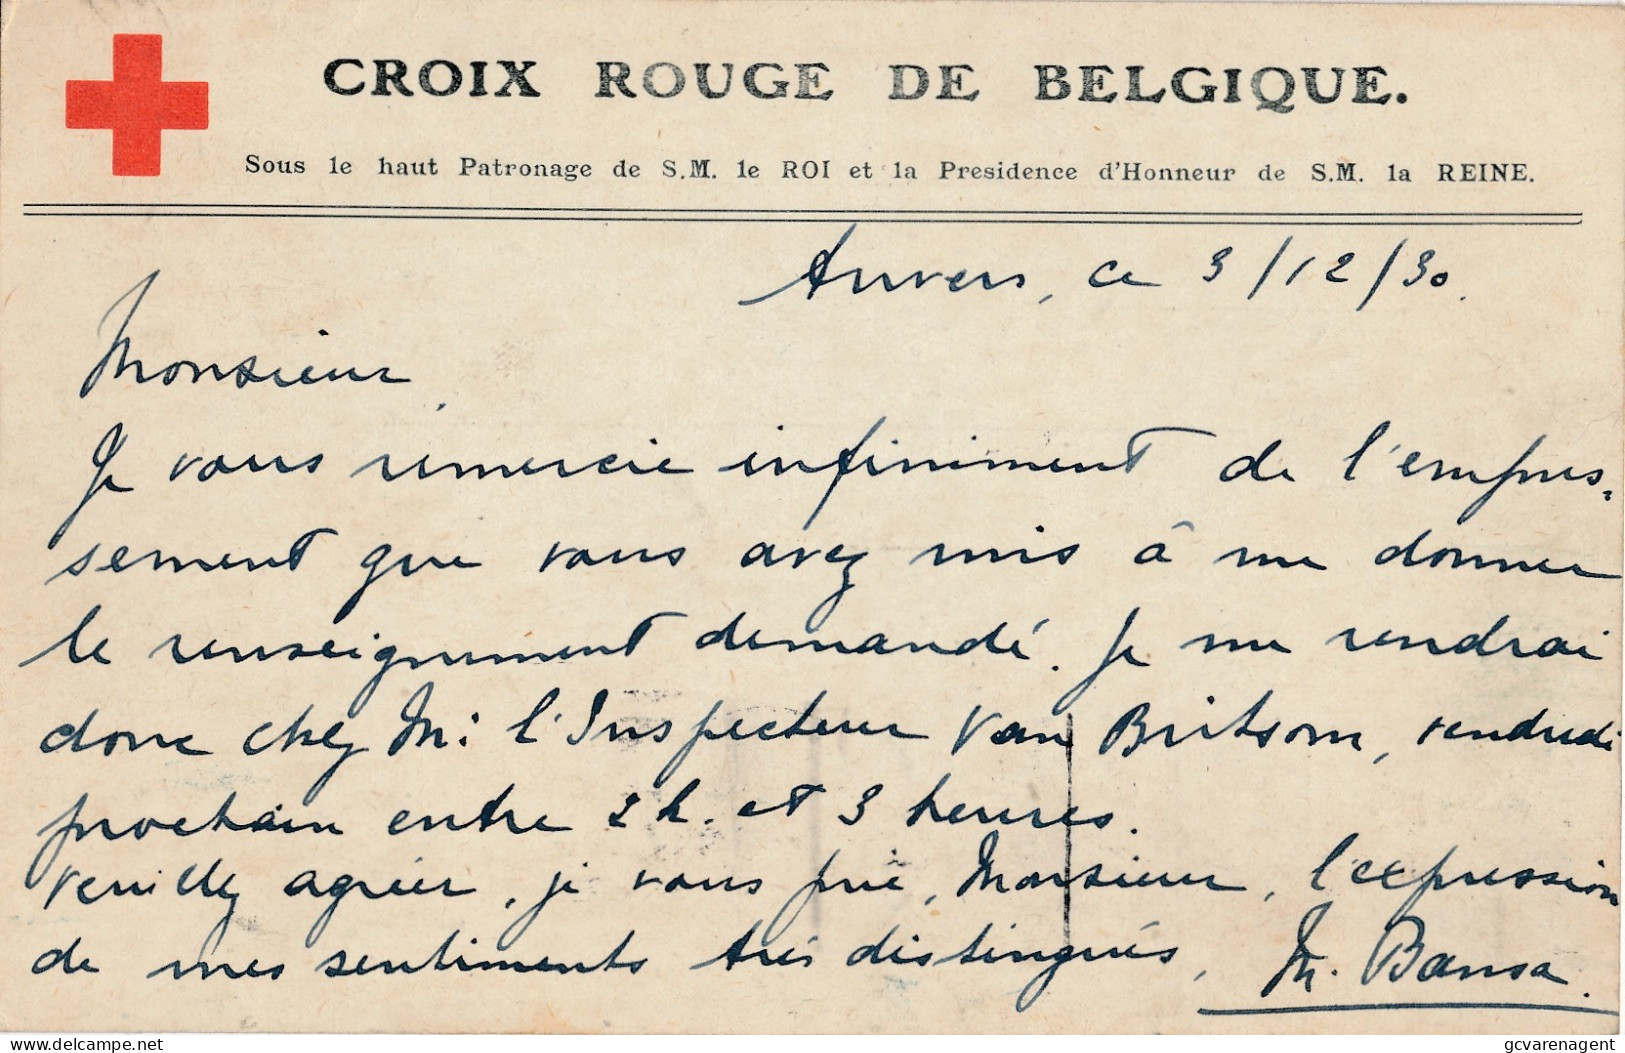 CROIX ROUGE DE BELGIQUE.
Sous le haut Patronage de S.M. le ROI et la Presidence d'Honneur de S.M. la REINE.
Anvers, ce 3/12/30.
Monsieur,
Je vous remercie infiniment de l'empres-
sement que vous avez mis à me donner
le renseignement demandé. Je me rendrai
donc chez M: l'Inspecteur Van Britsom, vendredi
prochain entre 2 h. et 3 heures.
Veuillez agréer, je vous prie, Monsieur, l'expression
de mes sentiments très distingués, M. Bansa.
delcampe.net
gcvarenagent